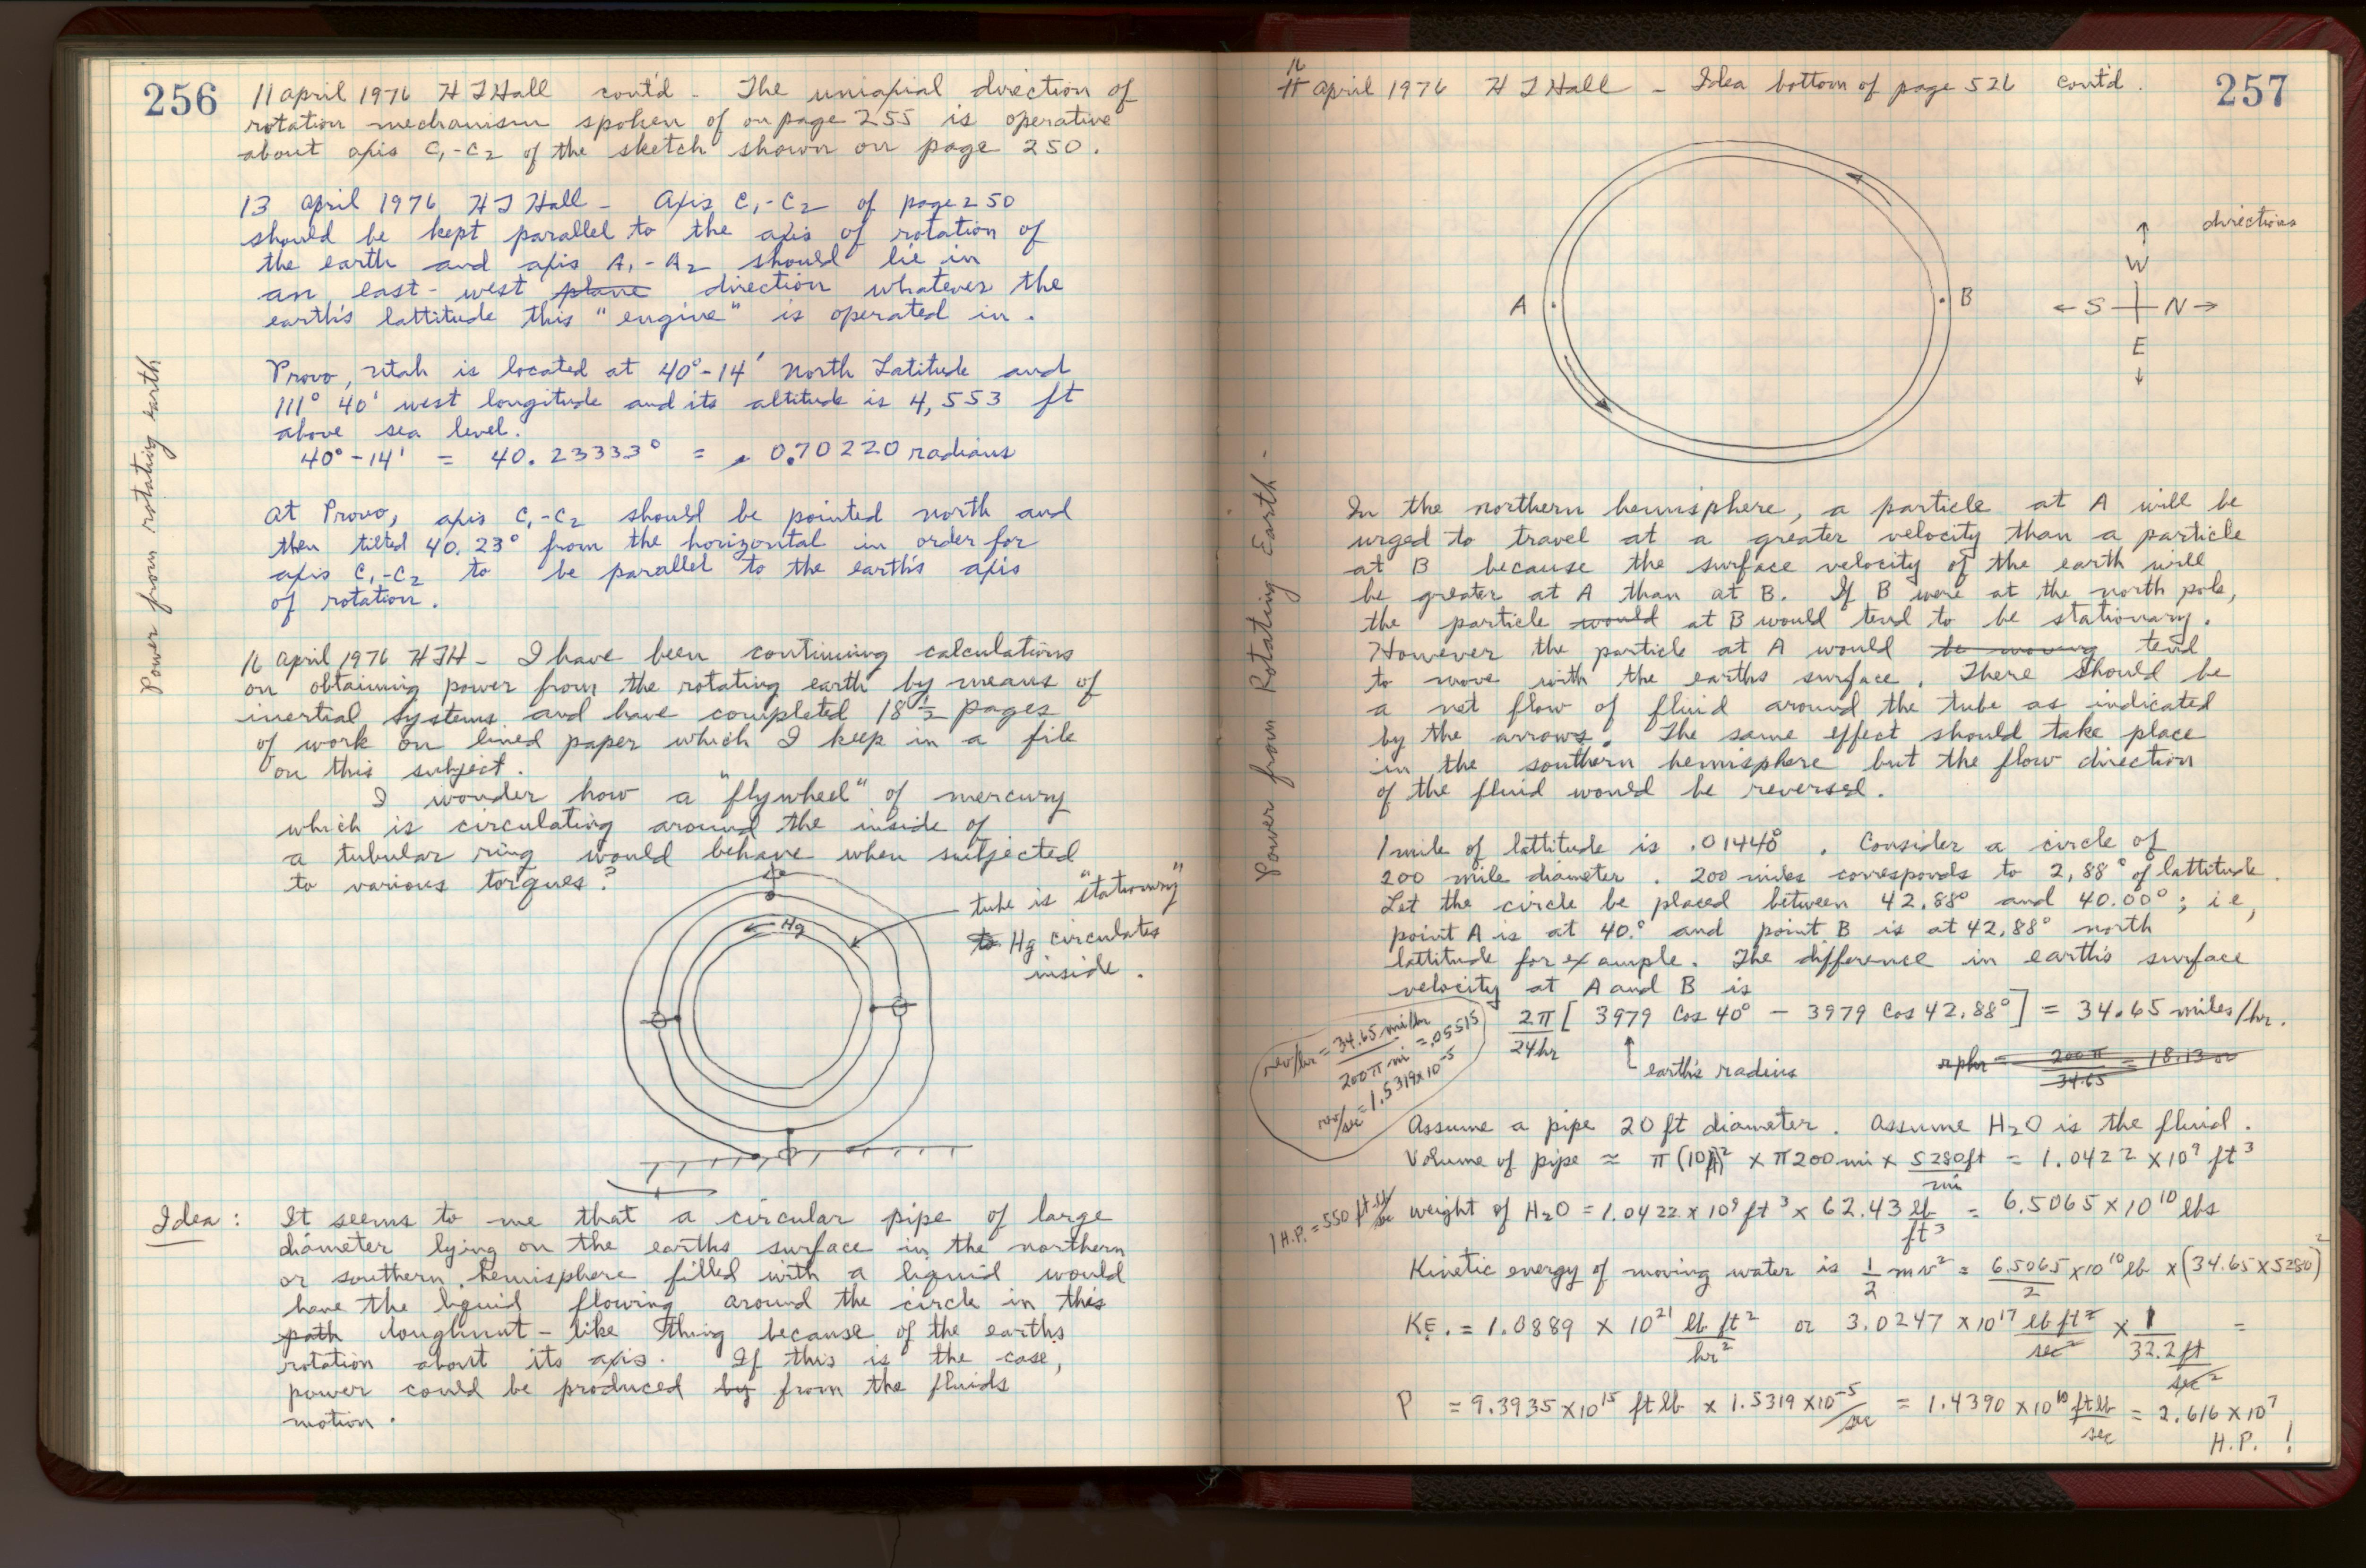 256
11 april 1976 H T Hall cont'd - The uniaxial direction of
rotation mechanism spoken of on page 255 is operative
about axis C1-C2 of the sketch shown on page 250.
13 april 1976 H T Hall - Axis C1-C2 of page 250
should be kept parallel to the axis of rotation of
the earth and axis A1-A2 should lie in
an east-west plane direction whatever the
earth's lattitude this "engine" is operated in.
Provo, Utah is located at 40°-14' north Latitude and
111° 40' west longitude and its altitude is 4,553 ft
above sea level.
40°-14' = 40.23333° = 0.70220 radians
At Provo, axis C1-C2 should be pointed north and
then tilted 40.23° from the horizontal in order for
axis C1-C2 to be parallel to the earth's axis
of rotation.
16 april 1976 HTH - I have been continuing calculations
on obtaining power from the rotating earth by means of
inertial systems and have completed 18 1/2 pages
of work on lined paper which I keep in a file
on this subject.
I wonder how a "flywheel" of mercury
which is circulating around the inside of
a tubular ring would behave when subjected
to various torques?
tube is "stationary"
to Hg circulates
inside.
Hg
Idea: It seems to me that a circular pipe of large
diameter lying on the earths surface in the northern
or southern hemisphere filled with a liquid would
have the liquid flowing around the circle in this
path doughnut-like thing because of the earths
rotation about its axis. If this is the case,
power could be produced by from the fluids
motion.
Power from rotating earth
16
11 april 1976 H T Hall - Idea bottom of page 526 cont'd.
257
directions
↑
W
A
B
← S N →
E
↓
In the northern hemisphere, a particle at A will be
urged to travel at a greater velocity than a particle
at B because the surface velocity of the earth will
be greater at A than at B. If B were at the north pole,
the particle would at B would tend to be stationary.
However the particle at A would be moving tend
to move with the earths surface. There should be
a net flow of fluid around the tube as indicated
by the arrows. The same effect should take place
in the southern hemisphere but the flow direction
of the fluid would be reversed.
1 mile of lattitude is .01440°. Consider a circle of
200 mile diameter. 200 miles corresponds to 2.88° of lattitude.
Let the circle be placed between 42.88° and 40.00°; i.e,
point A is at 40.° and point B is at 42.88° north
lattitude for example. The difference in earth's surface
velocity at A and B is
2π/24hr [3979 Cos 40° - 3979 Cos 42.88°] = 34.65 miles/hr.
↑ earth's radius
rphr = 200π/34.65 = 18.13
rev/hr = 34.65 mi/hr / 200π mi = .05515
rev/sec = 1.5319x10^-5
Assume a pipe 20 ft diameter. Assume H2O is the fluid.
Volume of pipe ≈ π(10ft)² x π200mi x 5280ft/mi = 1.0422 x 10^9 ft³
1 H.P. = 550 ft.lb/sec
weight of H2O = 1.0422 x 10^9 ft³ x 62.43 lb/ft³ = 6.5065 x 10^10 lbs
Kinetic energy of moving water is 1/2 mv² = 6.5065/2 x10^10 lb x (34.65 x 5280)²
K.E. = 1.0889 x 10^21 lb ft²/hr² or 3.0247 x 10^17 lb ft²/sec² x 1/32.2 ft/sec² =
P = 9.3935 x 10^15 ft lb x 1.5319 x10^-5/sec = 1.4390 x 10^10 ft lb/sec = 2.616 x 10^7
H.P. !
Power from Rotating Earth -